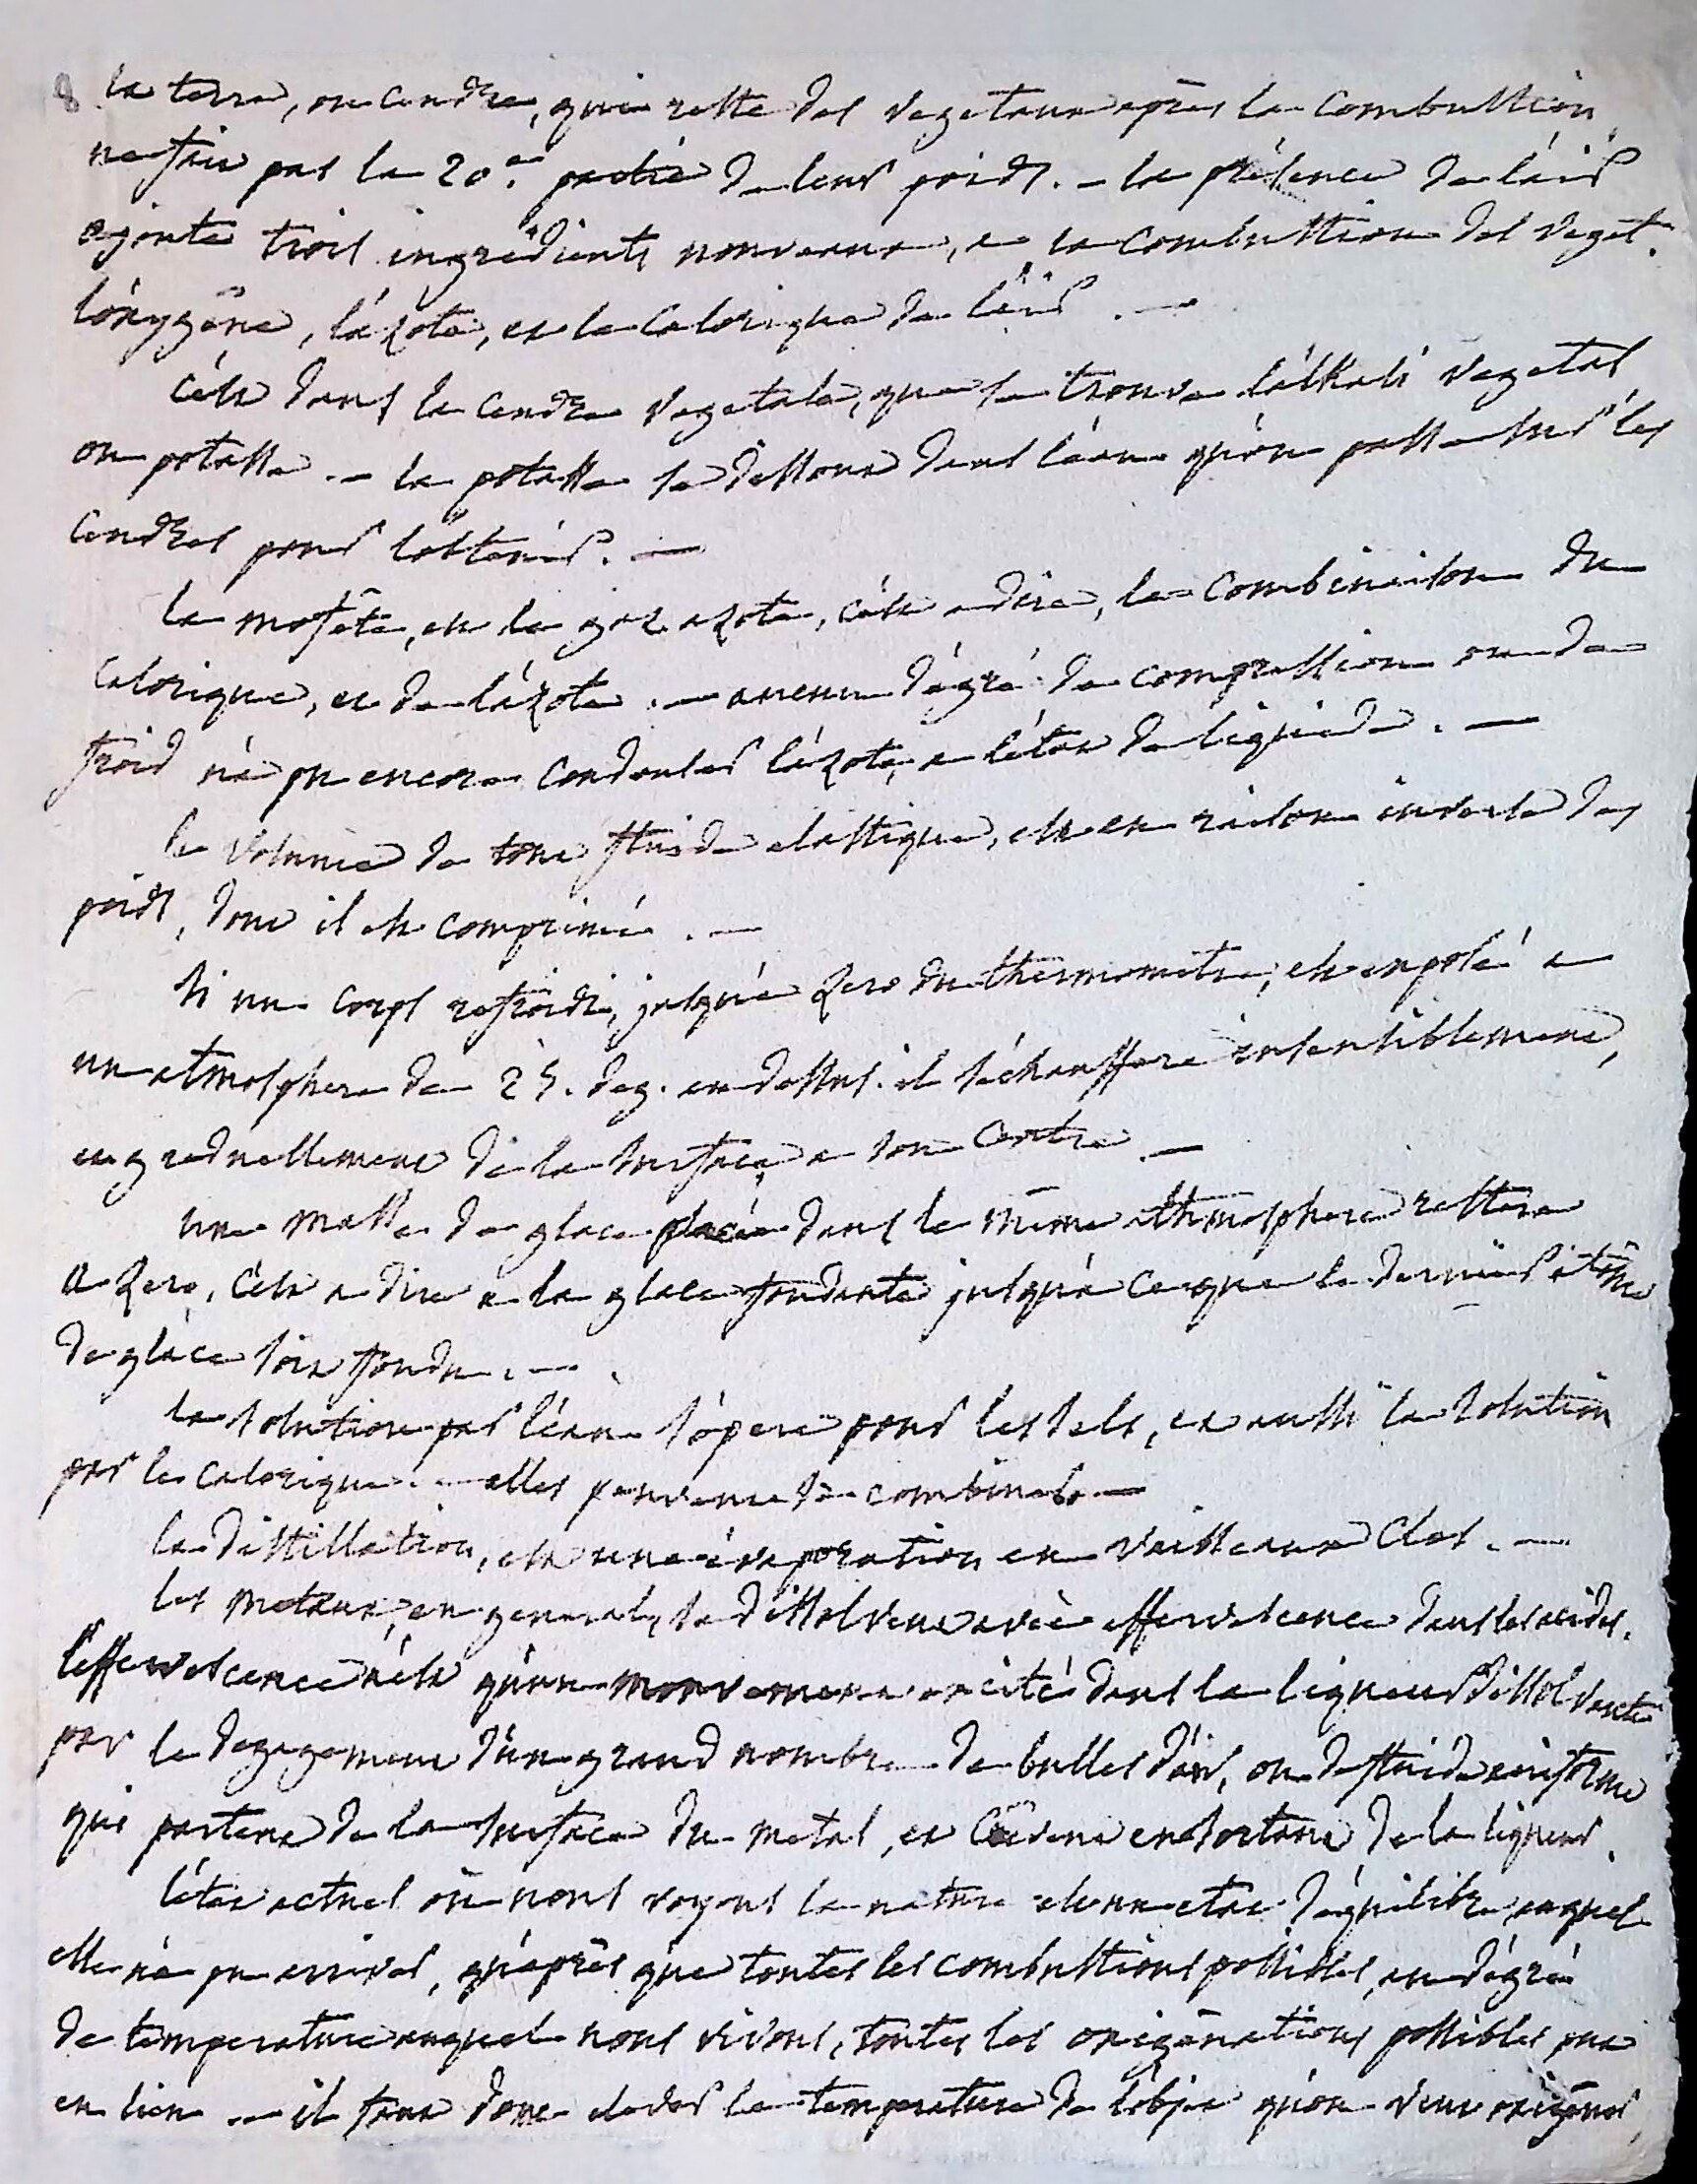 8 la terre, ou cendre, qui reste des vegetaux après la combustion
ne fait pas la 20.e partie de leur poids. – la présence de l'air
ajoute trois ingrédients nouveaux, a la combustion des veget.
l'oxygène, l'azote, et le calorique de l'air. —
c'est dans la cendre vegetale, que se trouve l'alkali vegetal
ou potasse. – la potasse se dissout dans l'eau qu'on passe sur les
cendres pour l'obtenir. —
la mofète, est le gaz azote, c'est a dire, la combinaison du
calorique, et de l'azote. — aucun dégré de compression ou de
froid n'a pu encore condenser l'azote, a l'état de liquide. —
le volume de tout fluide elastique, est en raison inverse des
poids, dont il est comprimé. —
si un corps refroidi, jusqu'a zero du thermometre, est exposé a
un atmosphere de 25. deg. au dessus. il s'échauffera insensiblement,
et graduellement de la surface, a son centre. —
une masse de glace placée dans le même athmosphere restera
a zero, c'est a dire a la glace fondante jusqu'a ce que le dernier atôme
de glace soit fondu. —
la solution par l'eau s'opere pour les sels, et aussi la solution
par le calorique. — elles peuvent se combiner. —
la distillation, est une évaporation en vaisseaux clos. —
les metaux, en general, se dissolvent avec effervescence dans les acides.
l'effervescence n'est qu'un mouvement excité dans la liqueur dissolvante
par le degagement d'un grand nombre de bulles d'air, ou de fluide aeriforme
qui partent de la surface du metal, et crèvent en sortant de la liqueur.
l'état actuel où nous voyons la nature est un etat d'équilibre, auquel
elle n'a pu arriver, qu'après que toutes les combustions possibles, au dégré
de temperature auquel nous vivons, toutes les oxigénations possibles ont
eu lieu. — il faut donc elever la temperature de l'objet qu'on veut oxigéner,